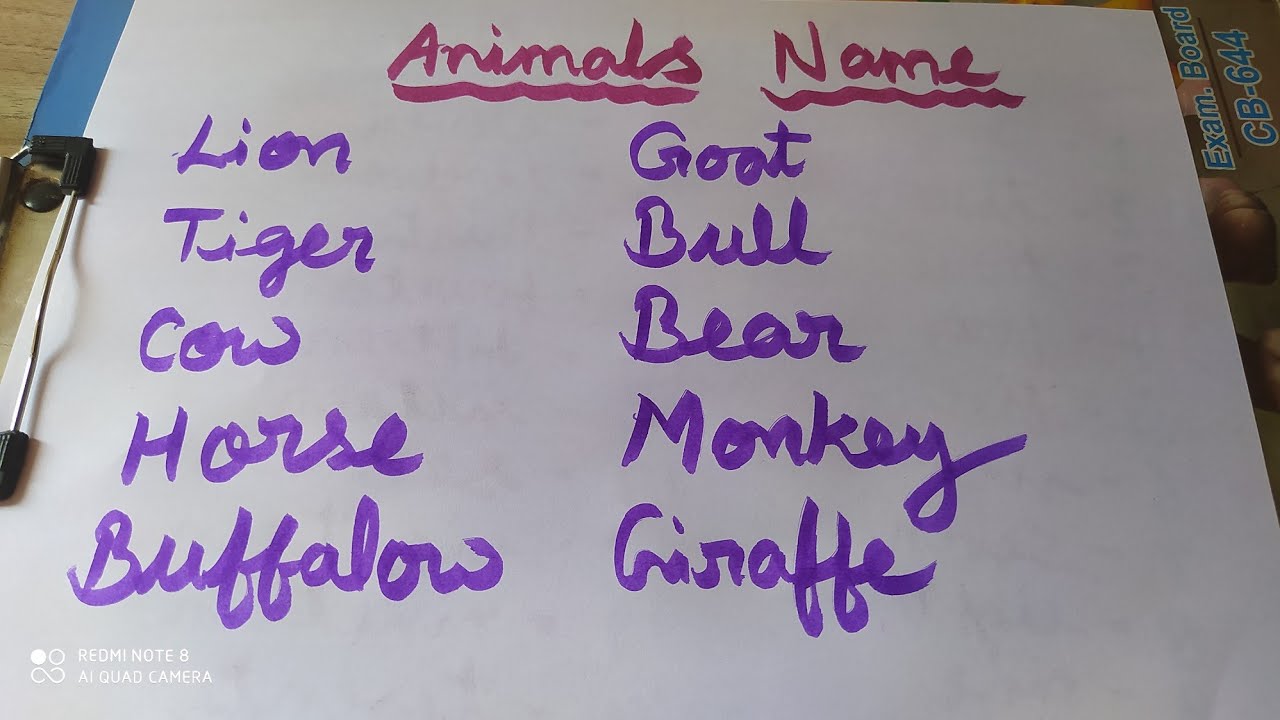 Animals Name
Lion
Tiger
Cow
Horse
Buffalow
Goat
Bull
Bear
Monkey
Giraffe
Exam. Board
CB-644
REDMI NOTE 8
AI QUAD CAMERA